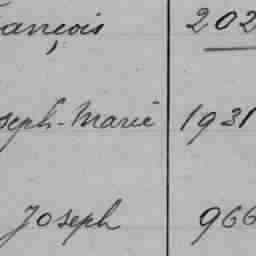 ançois 202
seph-Marie 1931
Joseph 966